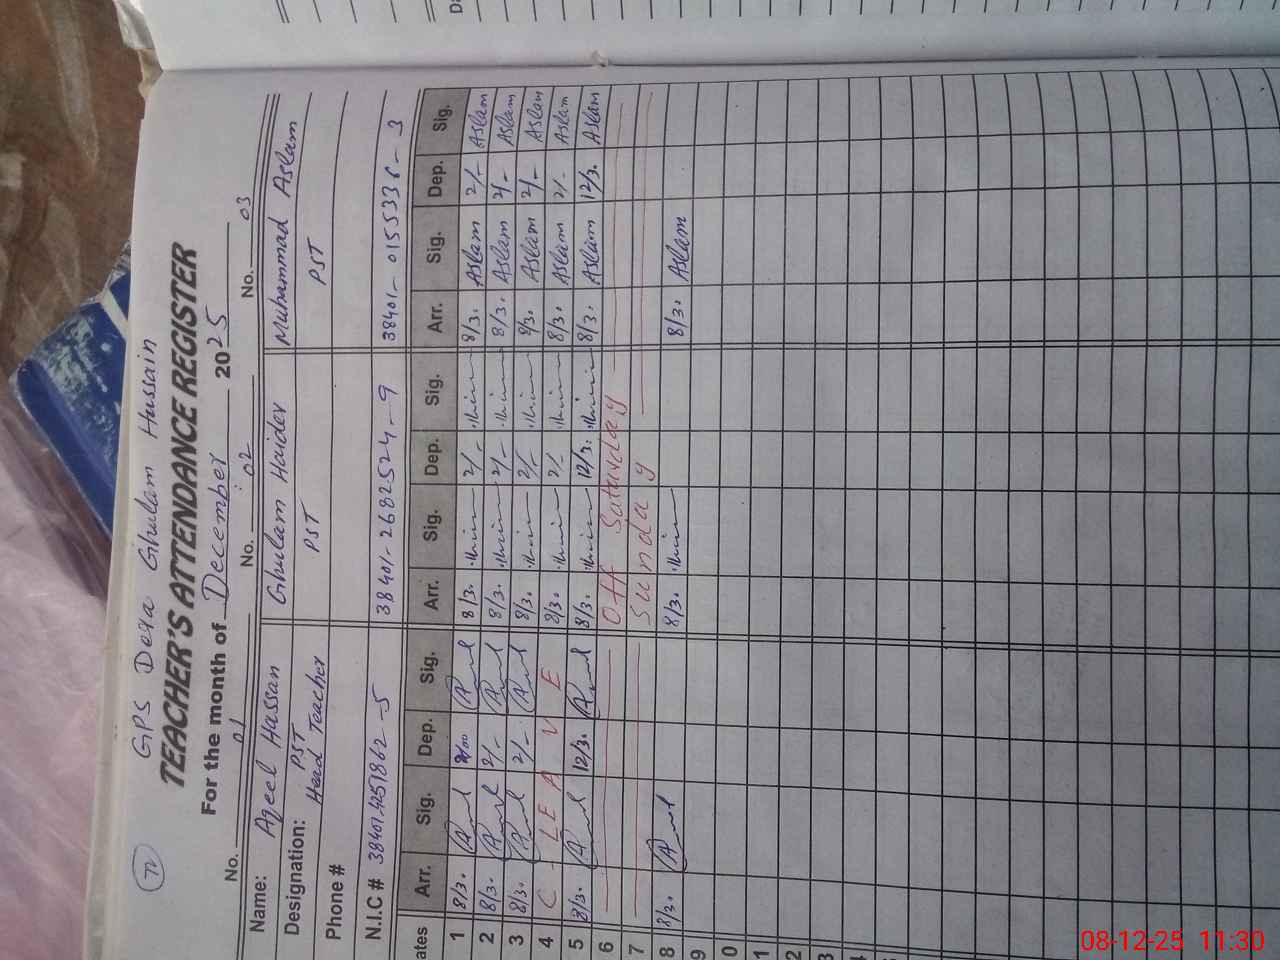 72
GPS Dera Ghulam Hussain
TEACHER'S ATTENDANCE REGISTER
For the month of December 2025
No. 01 No. 02 No. 03
Name: Aqeel Hassan Ghulam Haider Muhammad Aslam
Designation: PST Head Teacher PST PST
Phone #
N.I.C # 38401-4251862-5 38401-2682524-9 38401-0155336-3
ates Arr. Sig. Dep. Sig. Arr. Sig. Dep. Sig. Arr. Sig. Dep. Sig.
1 8/30 2/00 8/30 2/- 8/30 Aslam 2/- Aslam
2 8/30 2/- 8/30 2/- 8/30 Aslam 2/- Aslam
3 8/30 2/- 8/30 2/- 8/30 Aslam 2/- Aslam
4 C LEAVE 8/30 2/- 8/30 Aslam 2/- Aslam
5 8/30 12/30 8/30 12/30 8/30 Aslam 12/30 Aslam
6 Off Saturday
7 Sunday
8 8/30 8/30 8/30 Aslam
9
0
1
2
3
4
08-12-25 11:30